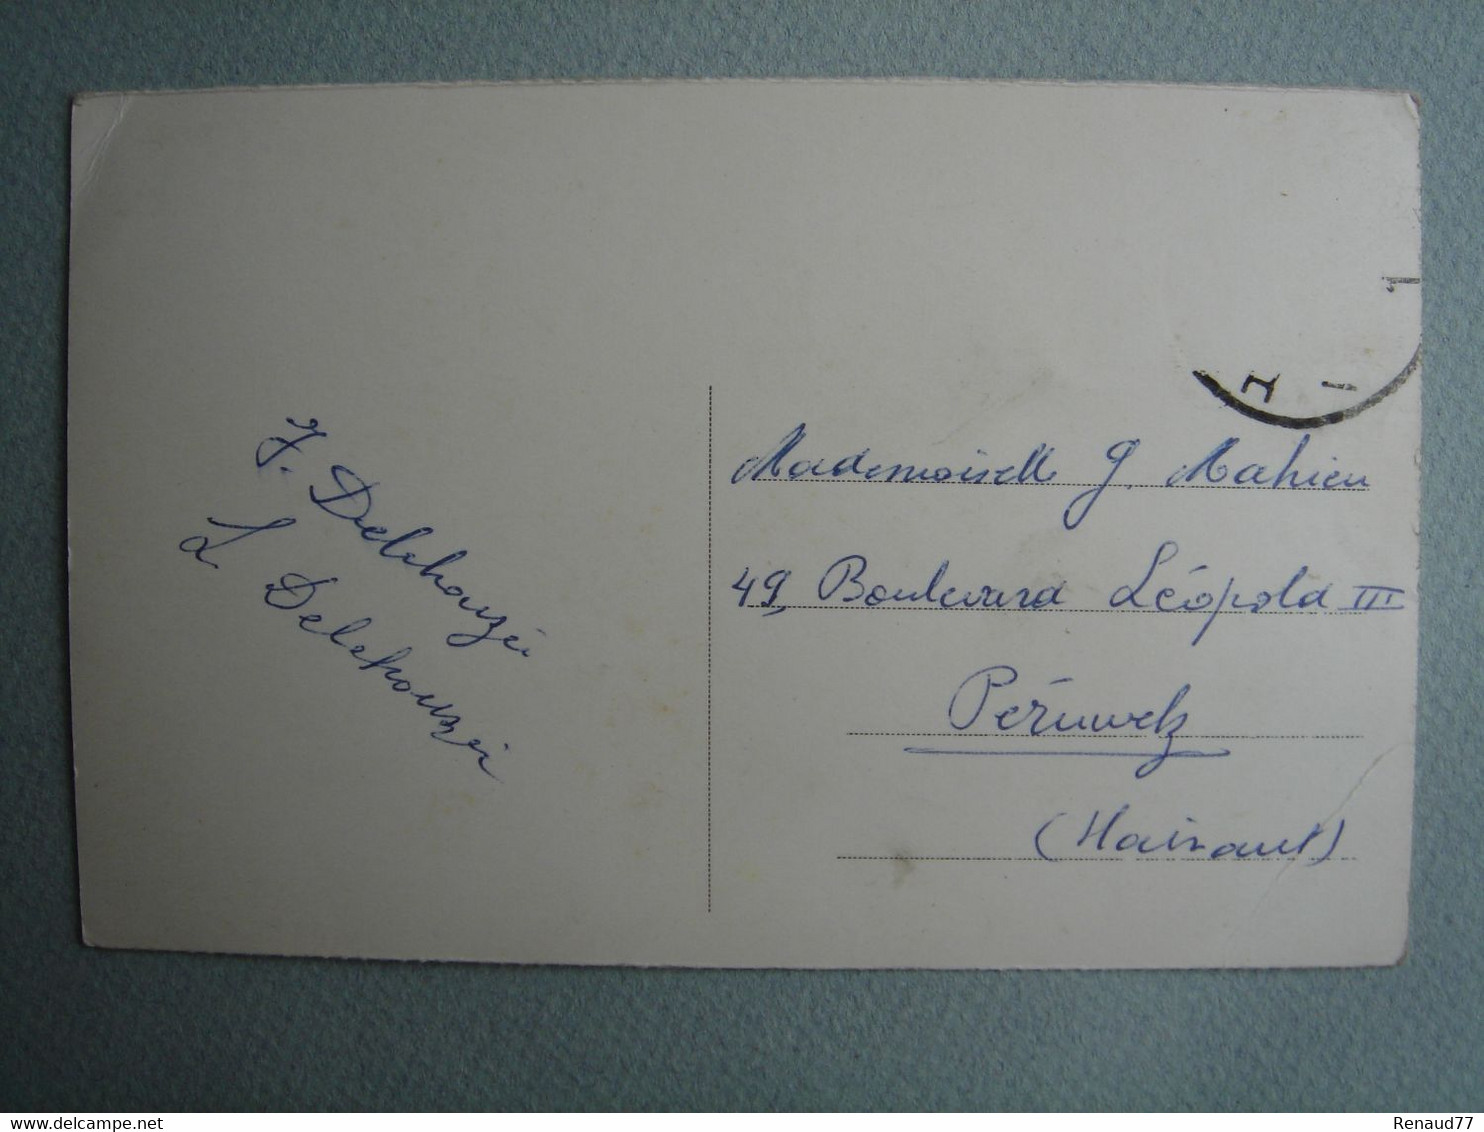 J. Delehouzée
L. Delehouzée
Mademoiselle G. Mahieu
49, Boulevard Léopold III
Péruwelz
(Hainaut)
delcampe.net
Renaud77